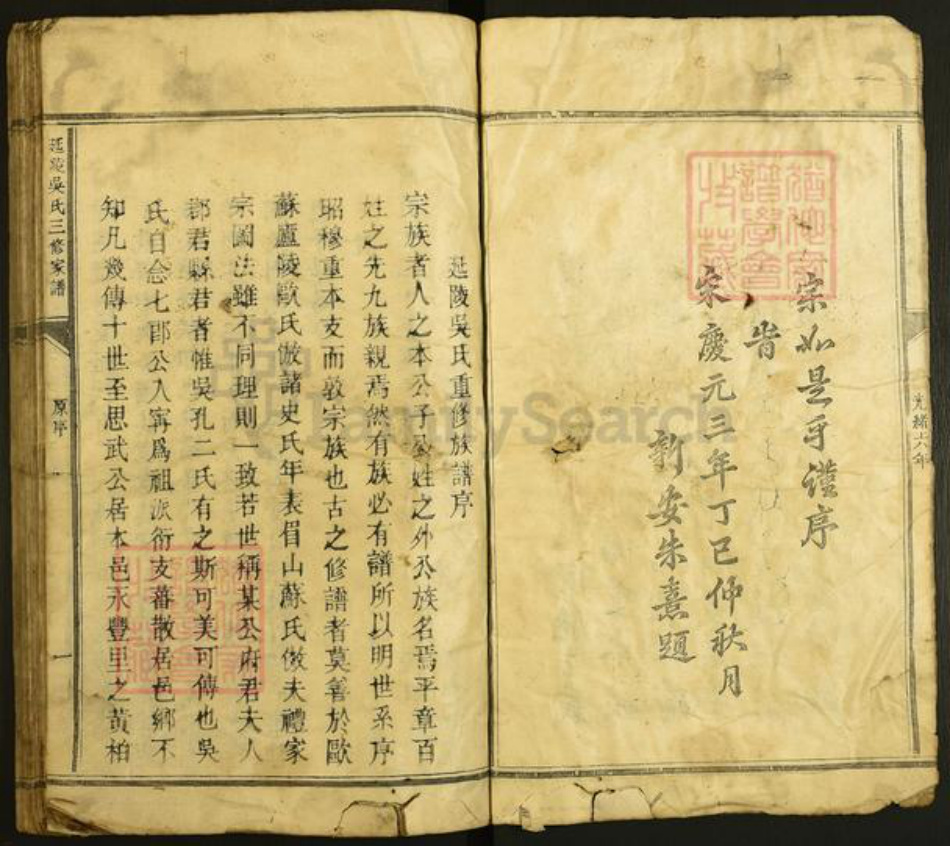 宗如是乎謹序
旹
宋慶元三年丁巳仲秋月
新安朱熹題
光緒十六年
延陵吳氏重修族譜序
宗族者人之本公子公姓之外公族名焉平章百
姓之先九族親焉然有族必有譜所以明世系序
昭穆重本支而敦宗族也古之修譜者莫善於歐
蘇廬陵歐氏倣諸史氏年表眉山蘇氏倣夫禮家
宗圖法雖不同理則一致若世稱某公府君夫人
郡君縣君者惟吳孔二氏有之斯可美可傳也吳
氏自念七郎公入寧爲祖派衍支蕃散居邑鄉不
知凡幾傳十世至思武公居本邑永豐里之黃柏
延陵吳氏三修家譜
原序
一
FamilySearch